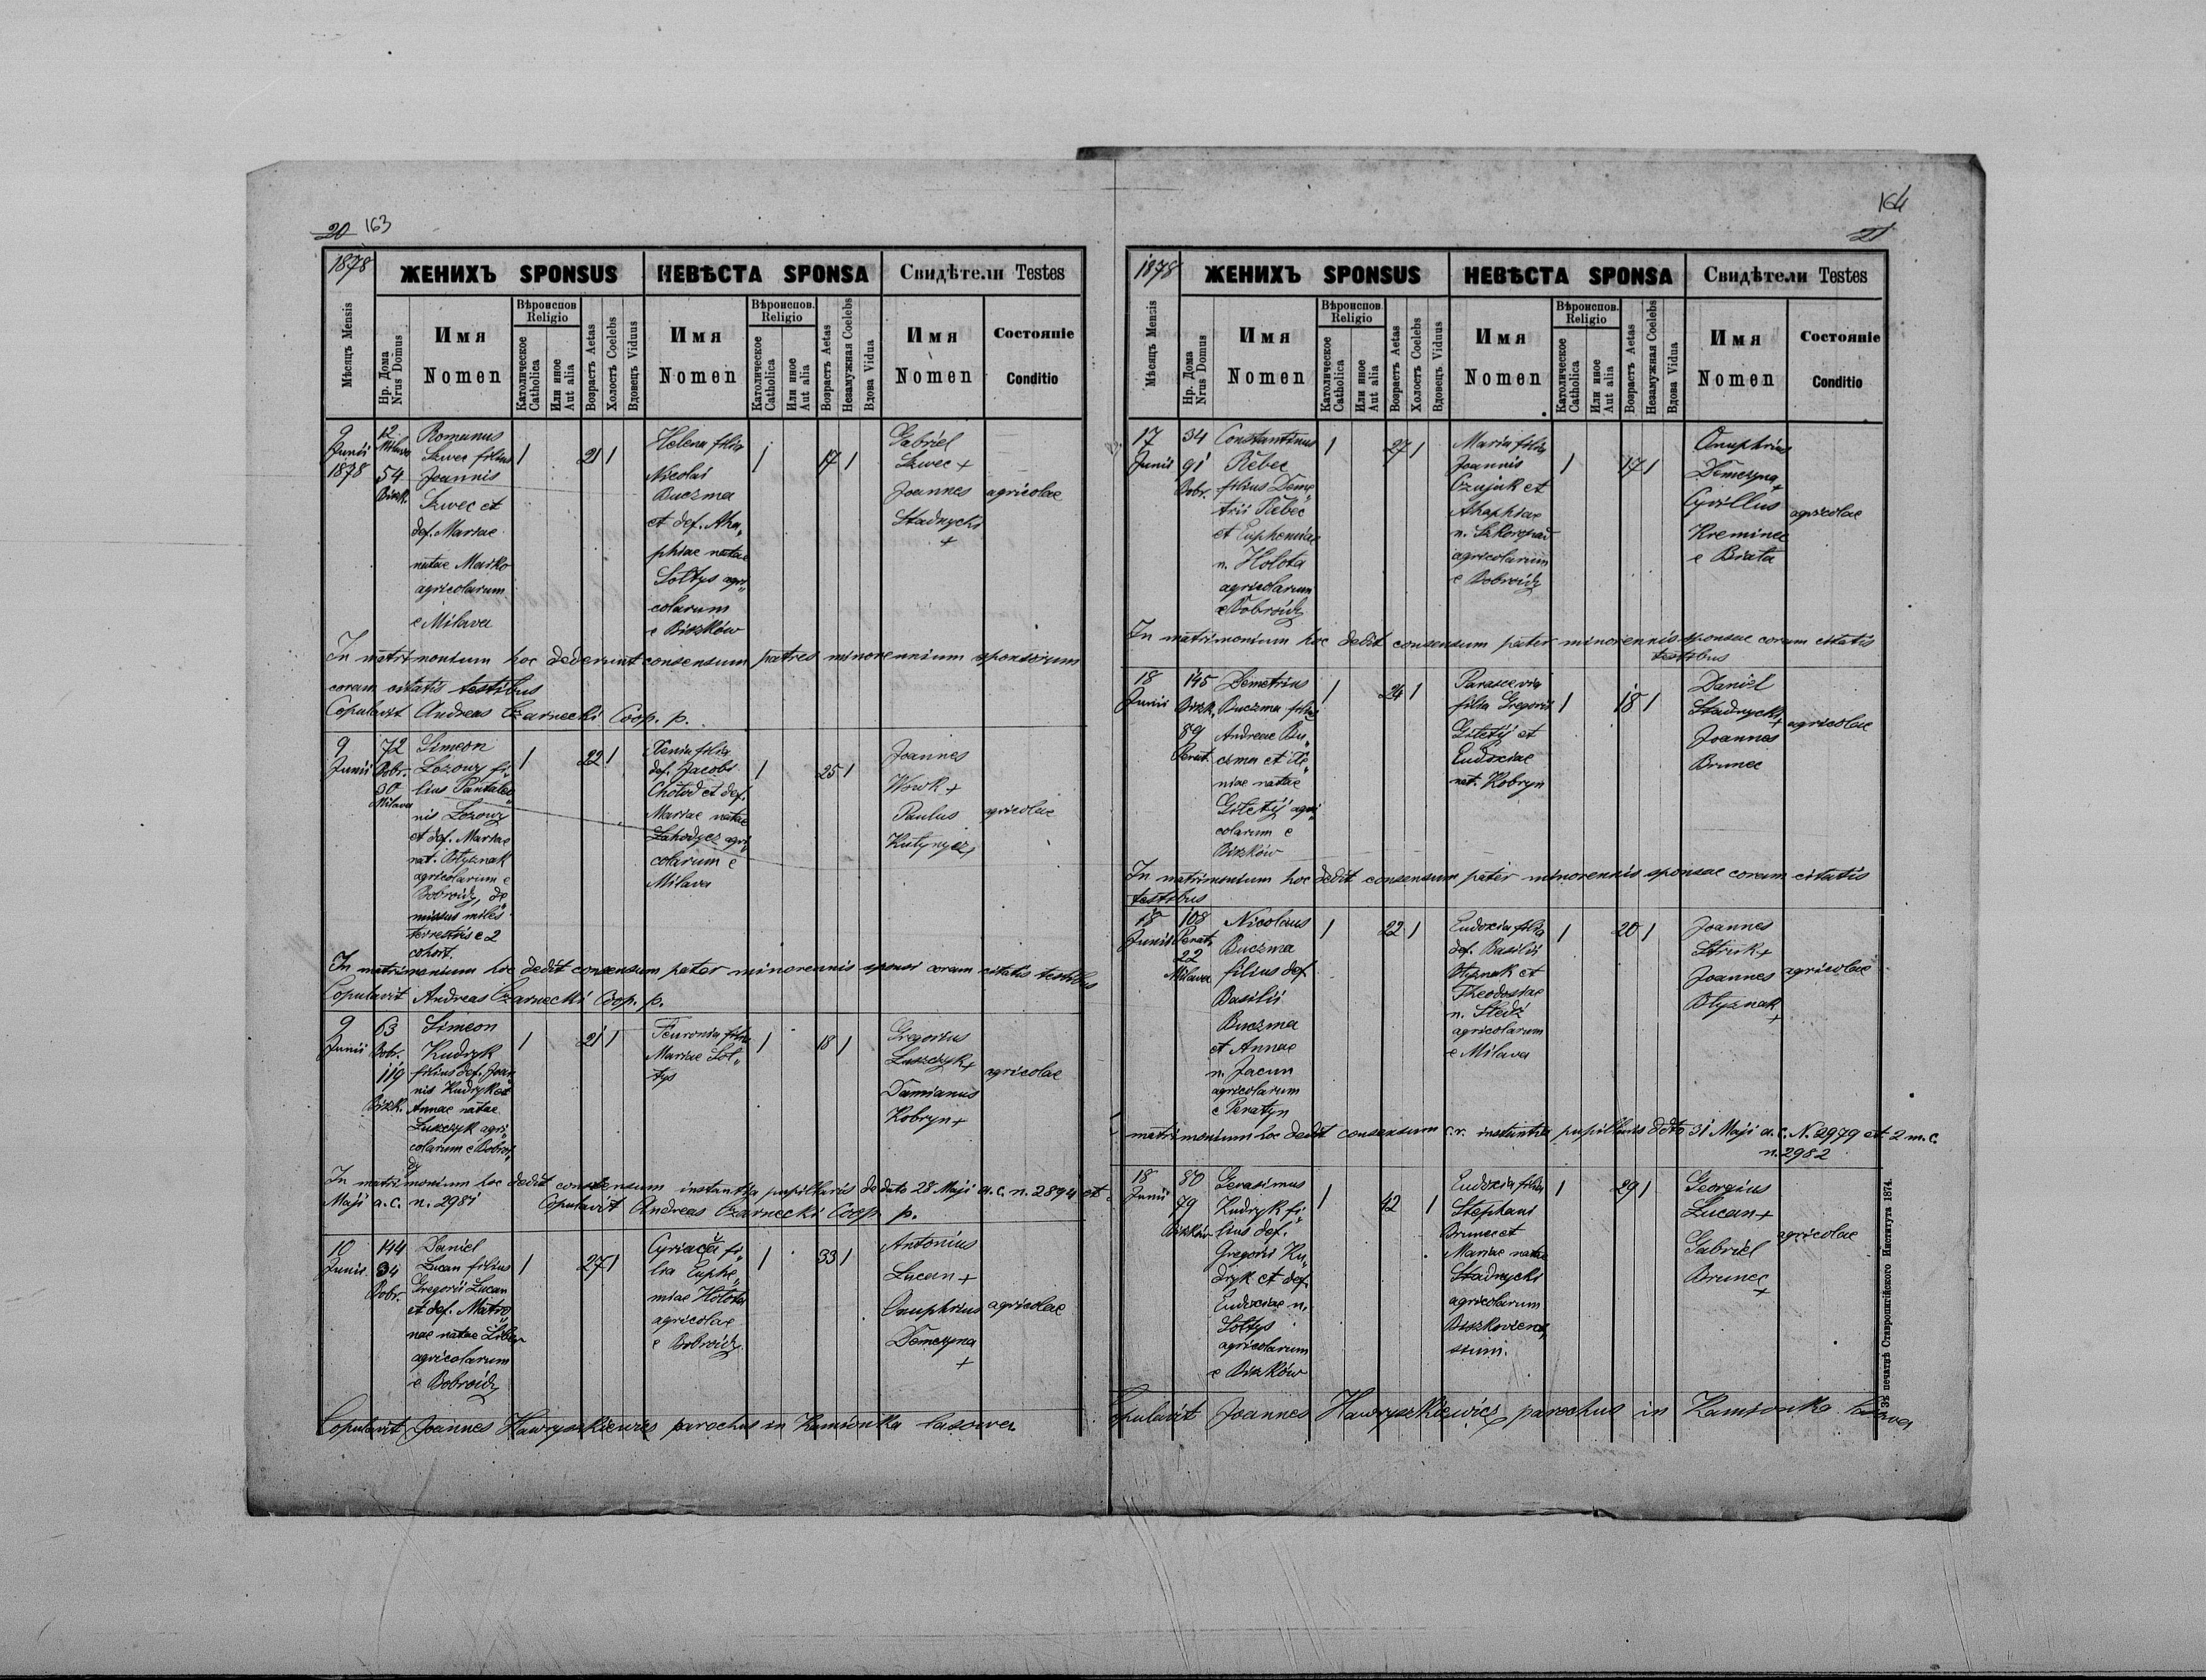 20 163
1878
ЖЕНИХЪ SPONSUS
НЕВѢСТА SPONSA
Свидѣтели Testes
Мѣсяцъ Mensis
Нр. Дома
Nrus Domus
Имя
Nomen
Вѣроиспов
Religio
Католическое
Catholica
Или иное
Aut alia
Возрастъ Aetas
Холостъ Coelebs
Вдовецъ Viduus
Имя
Nomen
Вѣроиспов.
Religio
Католическое
Catholica
Или иное
Aut alia
Возрастъ Aetas
Незамужная Coelebs
Вдова Vidua
Имя
Nomen
Состояніе
Conditio
9
Junii
1878
12
Milava
54
Biszk.
Romanus
Szwec filius
Joannis
Szwec et
def. Mariae
natae Maiko
agricolarum
e Milava
1
21
1
Helena filia
Nicolai
Buczma
et def. Aha„
phiae natae
Soltys agri„
colarum
e Biszków
1
17
1
Gabriel
Szwec +
Joannes
Stadnycki
+
agricolae
In matrimonium hoc dederunt consensum patres minorennium sponsorum
coram citatis testibus
Copulavit Andreas Czarnecki Coop. p.
9
Junii
72
Bobr.
30
Milava
Simeon
Lozowy fi„
lius Pantaleo„
nis Lozowy
et def. Mariae
nat. Błyznak
agricolarum e
Bobroidy, de„
missus miles
terrestris e 2
cohort.
1
22
1
Xenia filia
def. Jacobi
Chołod et def.
Mariae natae
Lahodycz agri„
colarum e
Milava
1
25
1
Joannes
Wowk +
Paulus
Kutynycz +
agricolae
In matrimonium hoc dedit consensum pater minorennis sponsi coram citatis testibus
Copulavit Andreas Czarnecki Coop. p.
9
Junii
63
Bobr.
119
Biszk.
Simeon
Kudryk
filius def. Joan„
nis Kudryk et
Annae natae
Luszczyk agri„
colarum e Bobroi„
dy
1
21
1
Feuronia filia
Mariae Sol„
tys
1
18
1
Gregorius
Luszczyk +
Damianus
Kobryn +
agricolae
In matrimonium hoc dedit consensum instantia pupillaris de dato 28 Maji a.c. n. 2894 et
Maji a.c. n. 2981 Copulavit Andreas Czarnecki Coop. p.
10
Junii
144
94
Bobr.
Daniel
Lucan filius
Gregorii Lucan
et def. Matro„
nae natae
agricolarum
e Bobroidy
1
27
1
Cyriaca fi„
lia Euphe„
miae Holota
agricolae
e Bobroidy.
1
33
1
Antonius
Lucan +
Onuphrius
Demczyna
+
agricolae
Copulavit Joannes Hawryszkiewicz parochus in Kamionka lasowa
164
21
1878
ЖЕНИХЪ SPONSUS
НЕВѢСТА SPONSA
Свидѣтели Testes
Мѣсяцъ Mensis
Нр. Дома
Nrus Domus
Имя
Nomen
Вѣроиспов
Religio
Католическое
Catholica
Или иное
Aut alia
Возрастъ Aetas
Холостъ Coelebs
Вдовецъ Viduus
Имя
Nomen
Вѣроиспов.
Religio
Католическое
Catholica
Или иное
Aut alia
Возрастъ Aetas
Незамужная Coelebs
Вдова Vidua
Имя
Nomen
Состояніе
Conditio
17
Junii
34
91
Bobr.
Constantinus
Rebec
filius Deme„
trii Rebec
et Euphemiae
n. Holota
agricolarum
e Bobroidy
1
27
1
Maria filia
Joannis
Czujak et
Ahaphiae
n.
agricolarum
e Bobroidy
1
17
1
Onuphrius
Demczyna
+
Cyrillus
Kreminec
e Biała
agricolae
In matrimonium hoc dedit consensum pater minorennis sponsae coram citatis
testibus
18
Junii
145
Biszk.
89
Perat.
Demetrius
Buczma filius
Andreae Bu„
czma et Xe„
niae natae
Giletij agri„
colarum e
Biszków
1
24
1
Parascevia
filia Gregorii
Giletij et
Eudoxiae
nat. Kobryn
1
18
1
Daniel
Stadnycki
+
Joannes
Brunec
agricolae
In matrimonium hoc dedit consensum pater minorennis sponsae coram citatis
testibus
18
Junii
108
Perat.
22
Milava
Nicolaus
Buczma
filius def.
Basilii
Buczma
et Annae
n. Jacun
agricolarum
e Peratyn
1
22
1
Eudoxia filia
def. Basilii
Błyznak et
Theodosiae
n. Sledź
agricolarum
e Milava
1
20
1
Joannes
Struk +
Joannes
Błyznak
+
agricolae
matrimonium hoc dedit consensum c.r. instantia pupillaris ddto 31 Maji a.c. N. 2979 et 2 m.c.
n. 2982
18
Junii
80
79
Biszków
Gerasimus
Kudryk fi„
lius def.
Gregorii Ku„
dryk et def.
Eudoxiae n.
Soltys
agricolarum
e Biszków
1
42
1
Eudoxia filia
Stephani
Brunec et
Mariae natae
Stadnycki
agricolarum
Biszkovien„
sium.
1
29
1
Georgius
Lucan +
Gabriel
Brunec
+
agricolae
Copulavit Joannes Hawryszkiewicz parochus in Kamionka lasowa
Зъ печатнѣ Ставропигійского Института 1874.